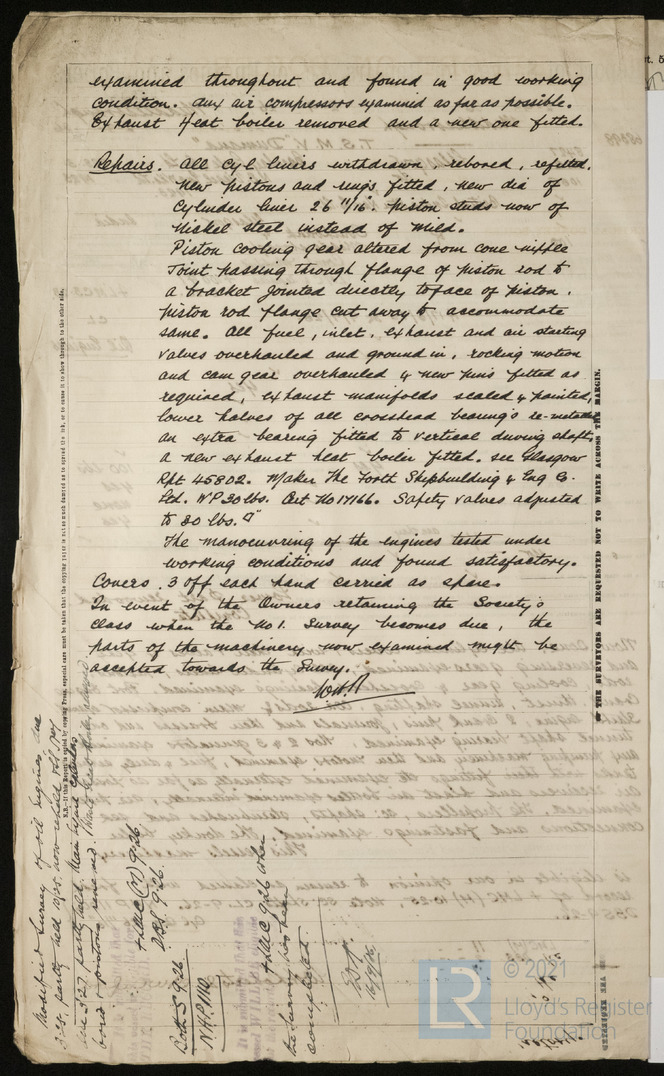 examined throughout and found in good working
condition. Aux air compressors examined as far as possible.
Exhaust Heat boiler removed and a new one fitted.
Repairs. All Cyl liners withdrawn, rebored, refitted.
New pistons and rings fitted, new dia of
Cylinder liner 26 11/16". Piston studs now of
Nickel steel instead of mild.
Piston cooling gear altered from cone nipple
Joint passing through flange of piston rod to
a bracket jointed directly to face of piston.
Piston rod flange cut away to accommodate
same. All fuel, inlet, exhaust and air starting
valves overhauled and ground in, rocking motion
and cam gear overhauled & new pins fitted as
required, exhaust manifolds scaled & painted,
lower halves of all crosshead bearings re-metaled
an extra bearing fitted to vertical driving shaft.
A new exhaust heat boiler fitted. See Glasgow
Rpt 45802. Maker The Forth Shipbuilding & Eng Co.
Ltd. WP 30 lbs. Cert No 17166. Safety valves adjusted
to 30 lbs. □"
The manoeuvring of the engines tested under
working conditions and found satisfactory.
Covers. 3 off each hand carried as spare.
In event of the Owners retaining the Society's
Class when the No 1. Survey becomes due, the
parts of the machinery now examined might be
accepted towards the Survey.
THE SURVEYORS ARE REQUESTED NOT TO WRITE ACROSS THE MARGIN.
N.B.—If this Report is copied by copying Press, especial care must be taken that the copying paper is not so much damped as to spread the ink, or to cause it to show through to the other side.
Modified Survey of oil engines due
3.26, partly held 10/25, now
in 3.27, partly held. Main
bored & pistons renewed.
+LMC (M) 9.26
DBS 9.26
Both S 9.26
NHP 1110
+LMC 9.26 when
the survey has been
completed
© 2021
Lloyd's Register
Foundation
LR